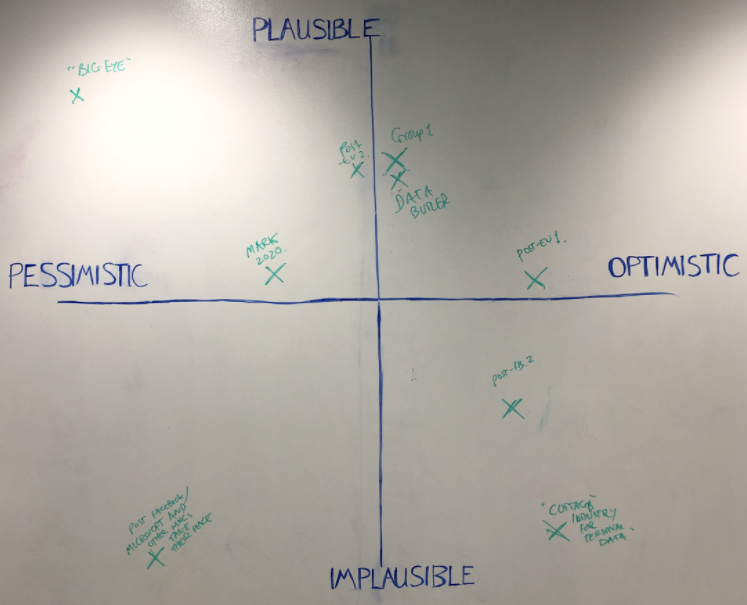 PLAUSIBLE
"BIG EYE"
POST
-EU 2.
Group 1
"DATA
BUTLER
MARK
2020.
POST-EU 1.
PESSIMISTIC
OPTIMISTIC
POST-FB.2
POST FACEBOOK/
MICROSOFT AND
OTHER MNCs
TAKE
THEIR PLACE
"COTTAGE
INDUSTRY
FOR
PERSONAL
DATA"
IMPLAUSIBLE